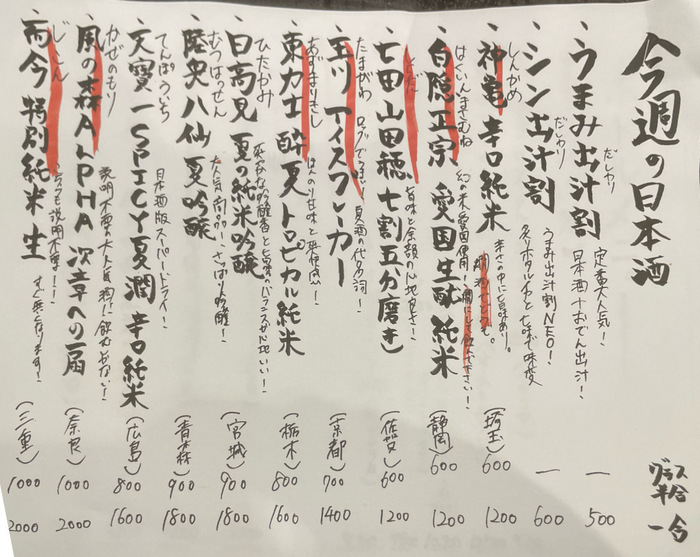 今週の日本酒
グラス
半合
一合
うまみ出汁割
だしわり
定番大人気!
日本酒+おでん出汁!
— 500
シン出汁割
だしわり
うまみ出汁割NEO!
炙りホタルイカと七味で味変
— 600
神亀 辛口純米
しんかめ
辛さの中に旨味あり。
(埼玉) 600 1200
白隠正宗 愛国生酛純米
はくいんまさむね
幻の米、愛国使用!
(静岡) 600 1200
七田山田穂 七割五分磨き
しちだ
旨味と余韻が心地良さ!
(佐賀) 600 1200
玉川 アイスブレーカー
たまがわ
ロックでうまい!
夏酒の代名詞!
(京都) 700 1400
東力士 酔夏トロピカル純米
あずまりきし
ほんのり甘味と
(栃木) 800 1600
日高見 夏の純米吟醸
ひたかみ
爽やかな吟醸香と旨味のバランスが心地いい!
(宮城) 900 1800
陸奥八仙 夏吟醸
むつはっせん
大人気 さっぱり吟醸!
(青森) 900 1800
天寶一SPICY夏潤 辛口純米
てんぽういち
日本酒版スーパードライ!
(広島) 800 1600
風の森ALPHA 次章への扉
かぜのもり
説明不要の大人気酒!
(奈良) 1000 2000
而今 特別純米 生
じこん
こちらも説明不要!!
すぐ無くなります!
(三重) 1000 2000